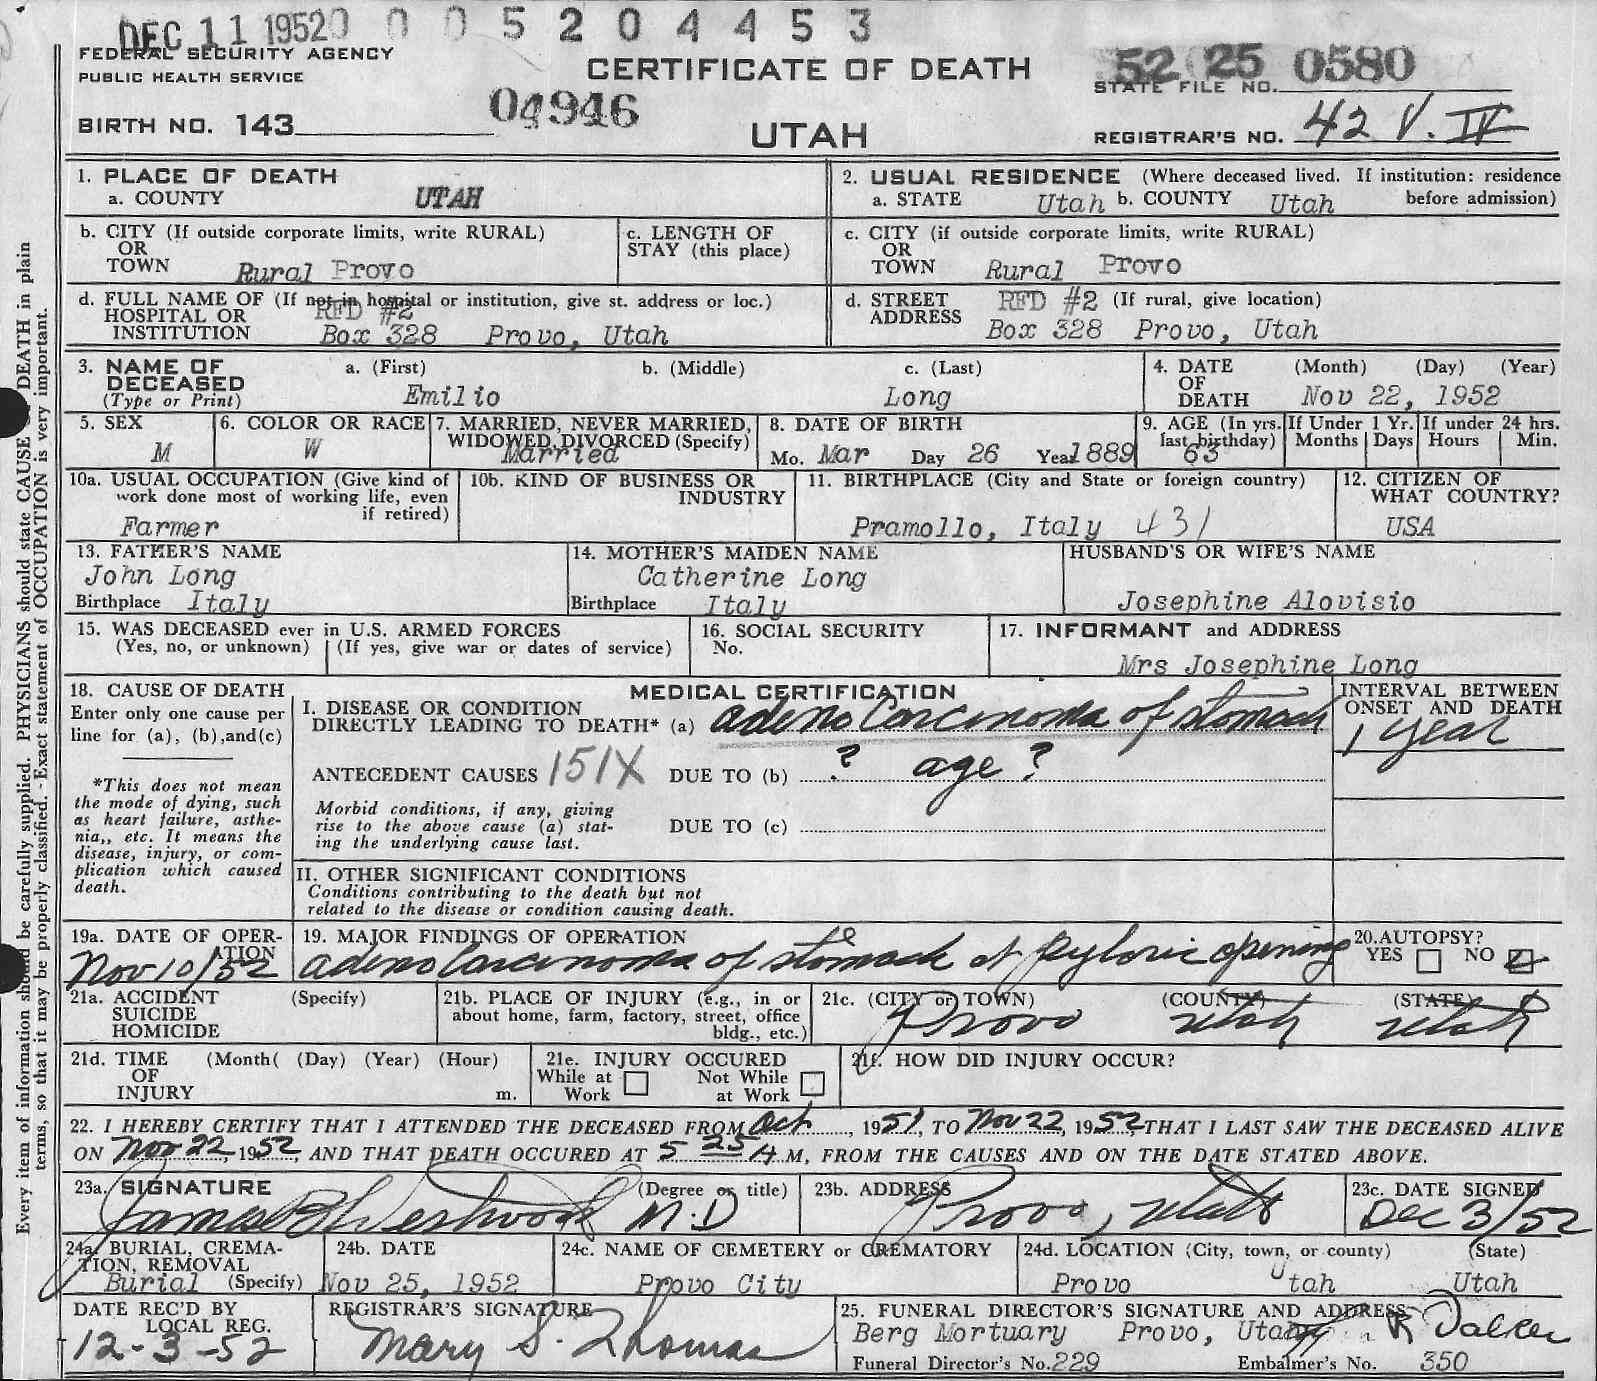 DEC 11 1952 0 0 0 5 2 0 4 4 5 3
FEDERAL SECURITY AGENCY
PUBLIC HEALTH SERVICE
CERTIFICATE OF DEATH
STATE FILE NO. 52 25 0580
BIRTH NO. 143 04946
UTAH
REGISTRAR'S NO. 42 V. IV
1. PLACE OF DEATH
a. COUNTY UTAH
2. USUAL RESIDENCE (Where deceased lived. If institution: residence before admission)
a. STATE Utah b. COUNTY Utah
b. CITY (If outside corporate limits, write RURAL)
OR
TOWN Rural Provo
c. LENGTH OF
STAY (this place)
c. CITY (if outside corporate limits, write RURAL)
OR
TOWN Rural Provo
d. FULL NAME OF (If not in hospital or institution, give st. address or loc.)
HOSPITAL OR
INSTITUTION
RFD #2
Box 328 Provo, Utah
d. STREET ADDRESS RFD #2 (If rural, give location)
Box 328 Provo, Utah
3. NAME OF
DECEASED
(Type or Print)
a. (First) b. (Middle) c. (Last)
Emilio Long
4. DATE
OF
DEATH
(Month) (Day) (Year)
Nov 22, 1952
5. SEX
M
6. COLOR OR RACE
W
7. MARRIED, NEVER MARRIED,
WIDOWED, DIVORCED (Specify)
Married
8. DATE OF BIRTH
Mo. Mar Day 26 Year 1889
9. AGE (In yrs.
last birthday)
63
If Under 1 Yr.
Months Days
If under 24 hrs.
Hours Min.
10a. USUAL OCCUPATION (Give kind of
work done most of working life, even
if retired)
Farmer
10b. KIND OF BUSINESS OR
INDUSTRY
11. BIRTHPLACE (City and State or foreign country)
Pramollo, Italy 431
12. CITIZEN OF
WHAT COUNTRY?
USA
13. FATHER'S NAME
John Long
Birthplace Italy
14. MOTHER'S MAIDEN NAME
Catherine Long
Birthplace Italy
HUSBAND'S OR WIFE'S NAME
Josephine Alovisio
15. WAS DECEASED ever in U.S. ARMED FORCES
(Yes, no, or unknown) (If yes, give war or dates of service)
16. SOCIAL SECURITY
No.
17. INFORMANT and ADDRESS
Mrs Josephine Long
18. CAUSE OF DEATH
Enter only one cause per
line for (a), (b),and(c)
*This does not mean
the mode of dying, such
as heart failure, asthe-
nia,, etc. It means the
disease, injury, or com-
plication which caused
death.
MEDICAL CERTIFICATION
I. DISEASE OR CONDITION
DIRECTLY LEADING TO DEATH* (a) adeno Carcinoma of stomach
INTERVAL BETWEEN
ONSET AND DEATH
1 year
ANTECEDENT CAUSES 151X DUE TO (b) ? age ?
Morbid conditions, if any, giving
rise to the above cause (a) stat-
ing the underlying cause last.
DUE TO (c)
II. OTHER SIGNIFICANT CONDITIONS
Conditions contributing to the death but not
related to the disease or condition causing death.
19a. DATE OF OPER-
ATION
Nov 10/52
19. MAJOR FINDINGS OF OPERATION
adeno Carcinoma of stomach at pyloric opening
20. AUTOPSY?
YES NO
21a. ACCIDENT (Specify)
SUICIDE
HOMICIDE
21b. PLACE OF INJURY (e.g., in or
about home, farm, factory, street, office
bldg., etc.)
21c. (CITY or TOWN) (COUNTY) (STATE)
Provo Utah Utah
21d. TIME (Month( (Day) (Year) (Hour)
OF
INJURY m.
21e. INJURY OCCURED
While at Work Not While at Work
21f. HOW DID INJURY OCCUR?
22. I HEREBY CERTIFY THAT I ATTENDED THE DECEASED FROM Oct, 1951, TO Nov 22, 1952, THAT I LAST SAW THE DECEASED ALIVE
ON Nov 22, 1952, AND THAT DEATH OCCURED AT 5 25 A M, FROM THE CAUSES AND ON THE DATE STATED ABOVE.
23a. SIGNATURE (Degree or title)
James B Westwood M.D
23b. ADDRESS
Provo, Utah
23c. DATE SIGNED
Dec 3/52
24a. BURIAL, CREMA-
TION, REMOVAL
Burial (Specify)
24b. DATE
Nov 25, 1952
24c. NAME OF CEMETERY or CREMATORY
Provo City
24d. LOCATION (City, town, or county) (State)
Provo Utah Utah
DATE REC'D BY
LOCAL REG.
12-3-52
REGISTRAR'S SIGNATURE
Mary S. Thomas
25. FUNERAL DIRECTOR'S SIGNATURE AND ADDRESS
Berg Mortuary Provo, Utah
Funeral Director's No. 229 Embalmer's No. 350
Every item of information should be carefully supplied. PHYSICIANS should state CAUSE DEATH in plain
terms, so that it may be properly classified. - Exact statement of OCCUPATION is very important.